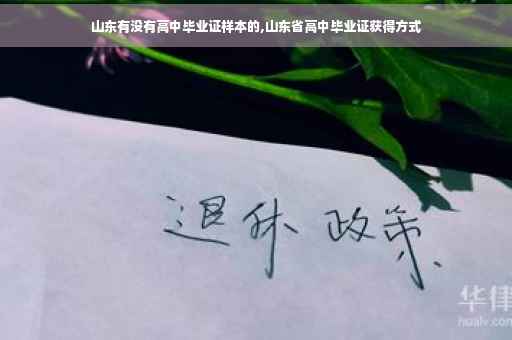 山东有没有高中毕业证样本的,山东省高中毕业证获得方式
退休 政策
华律
hualv.com